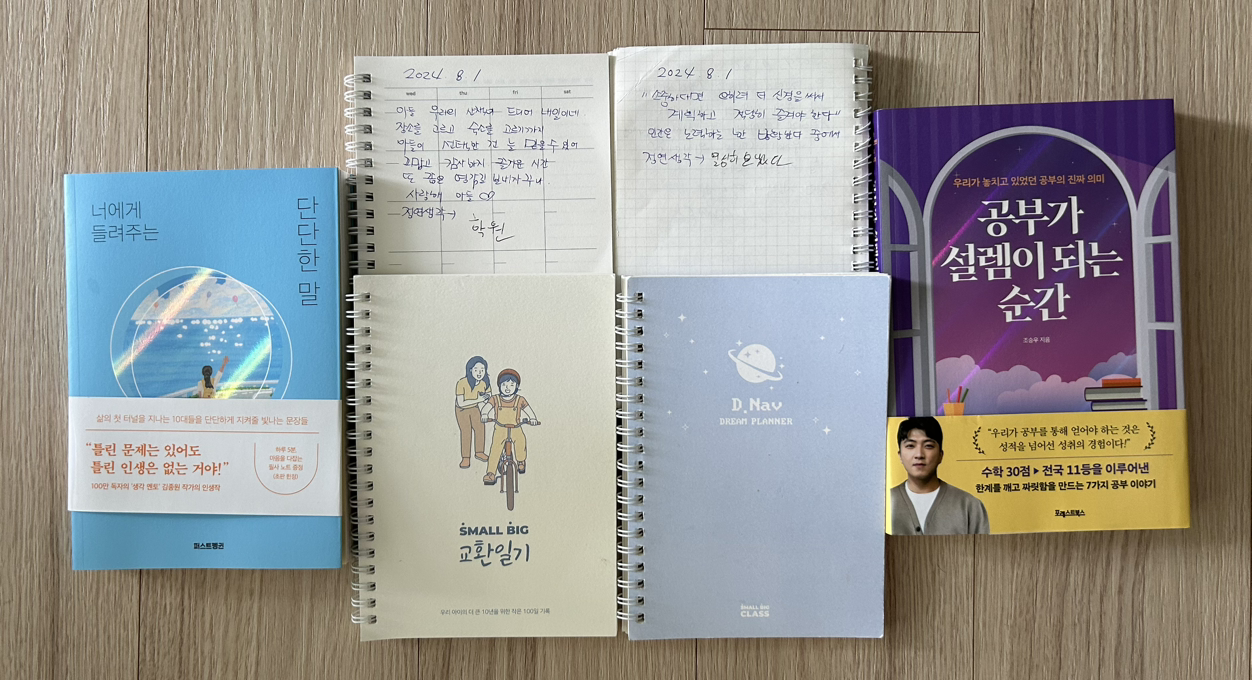 너에게
들려주는
단단한 말
삶의 첫 터널을 지나는 10대들을 단단하게 지켜줄 빛나는 문장들
“틀린 문제는 있어도
틀린 인생은 없는 거야!”
100만 독자의 ‘생각 멘토’ 김종원 작가의 인생작
하루 5분,
마음을 다잡는
필사 노트 증정
(초판 한정)
퍼스트펭귄
2024 8 1
wed thu fri sat
아들 우리의 산책녀 드디어 내일이네
장소를 고르고 숙소를 고르기까지
아들이 선택한 건 늘 믿을 수 있어
고맙고 감사하지 즐거운 시간
또 좋은 보내자꾸나
사랑해 아들
정연생각→
학원
2024 8 1
더 신경을 써서
계획하고 해야 한다"
인간은 노력하는 한 방황한다 중에서
정연생각→
SMALL BIG
교환일기
우리 아이의 더 큰 10년을 위한 작은 100일 기록
D.Nav
DREAM PLANNER
SMALL BIG
CLASS
우리가 놓치고 있었던 공부의 진짜 의미
공부가
설렘이 되는
순간
조승우 지음
“우리가 공부를 통해 얻어야 하는 것은
성적을 넘어선 성취의 경험이다!”
수학 30점 ▶ 전국 11등을 이루어낸
한계를 깨고 짜릿함을 만드는 7가지 공부 이야기
포레스트북스